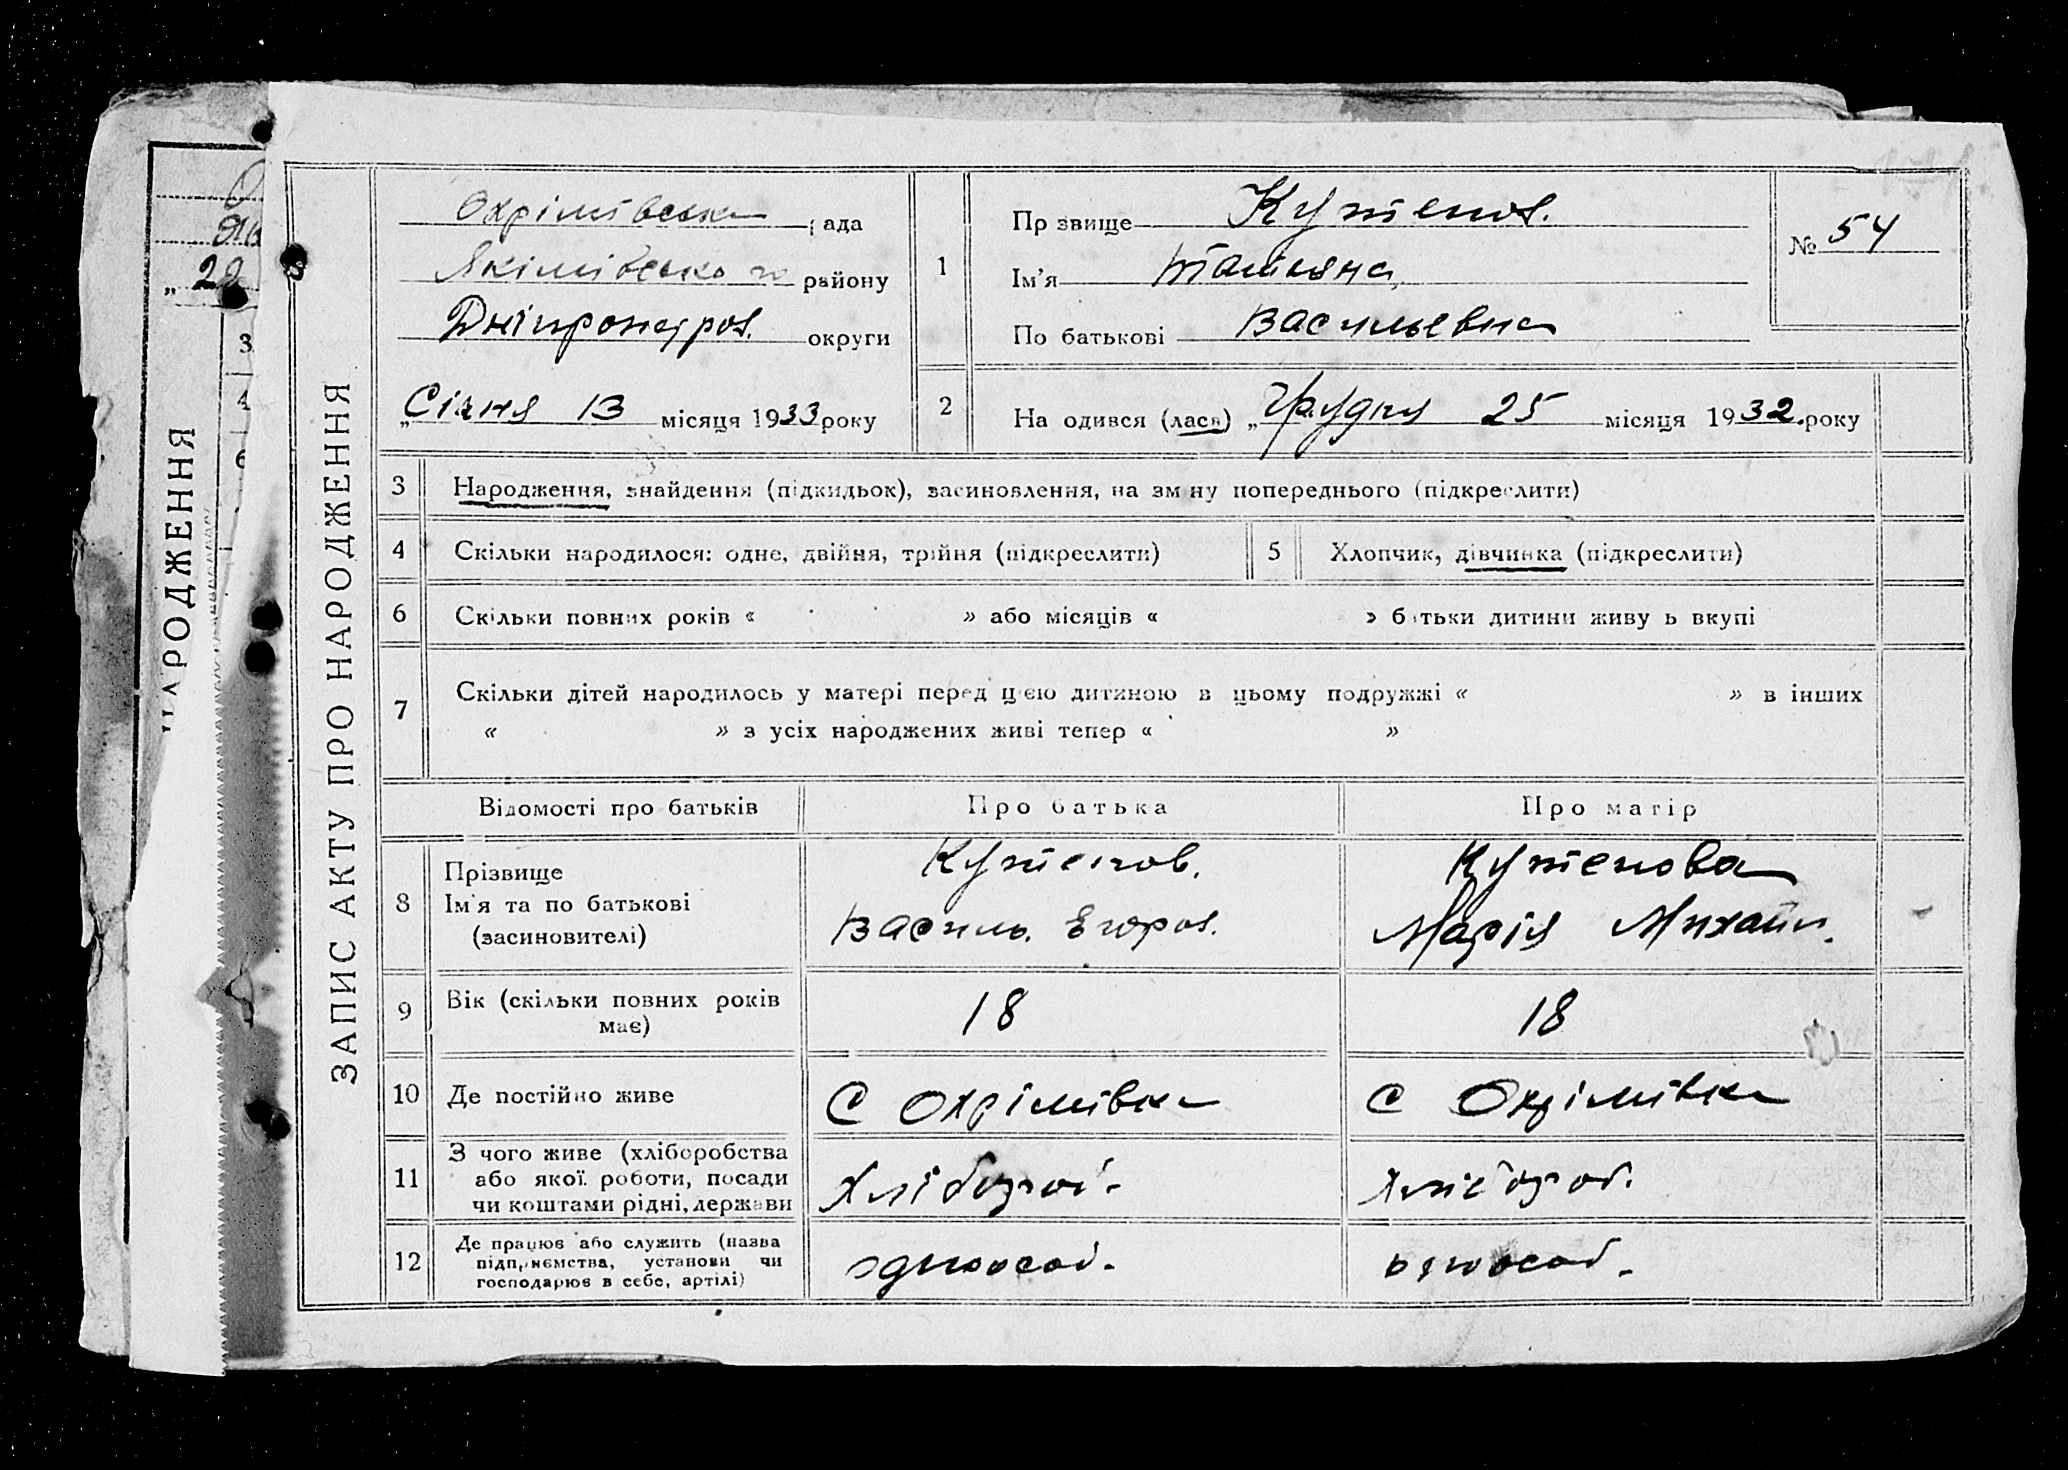 ЗАПИС АКТУ ПРО НАРОДЖЕННЯ
Охрімівська рада
Якімівсько го району
Дніпропетров. округи
„Січня 13 місяця 1933 року
1
Прізвище Кутепов.
Ім'я Татьяна
По батькові Васильевна
№ 54
2
На одився (лася) „Грудня 25 місяця 1932. року
3 Народження, знайдення (підкидьок), засиновлення, на зм ну попереднього (підкреслити)
4 Скільки народилося: одне, двійня, трійня (підкреслити) 5 Хлопчик, дівчинка (підкреслити)
6 Скільки повних років « » або місяців « » батьки дитини живу ь вкупі
7 Скільки дітей народилось у матері перед цією дитиною в цьому подружжі « » в інших
« » з усіх народжених живі тепер « »
Відомості про батьків Про батька Про матір
8 Прізвище
Ім'я та по батькові
(засиновителі)
Кутепов.
Василь. Егоров.
Кутепова
Марія Михайл.
9 Вік (скільки повних років
має)
18 18
10 Де постійно живе С Охрімівка С Охрімівка
11 З чого живе (хліборобства
або якої роботи, посади
чи коштами рідні, держави
Хлібороб. Хлібороб.
12 Де працює або служить (назва
підприємства, установи чи
господарює в себе, артілі)
одноособ. одноособ.
НАРОДЖЕННЯ
„ 29
3
4
6